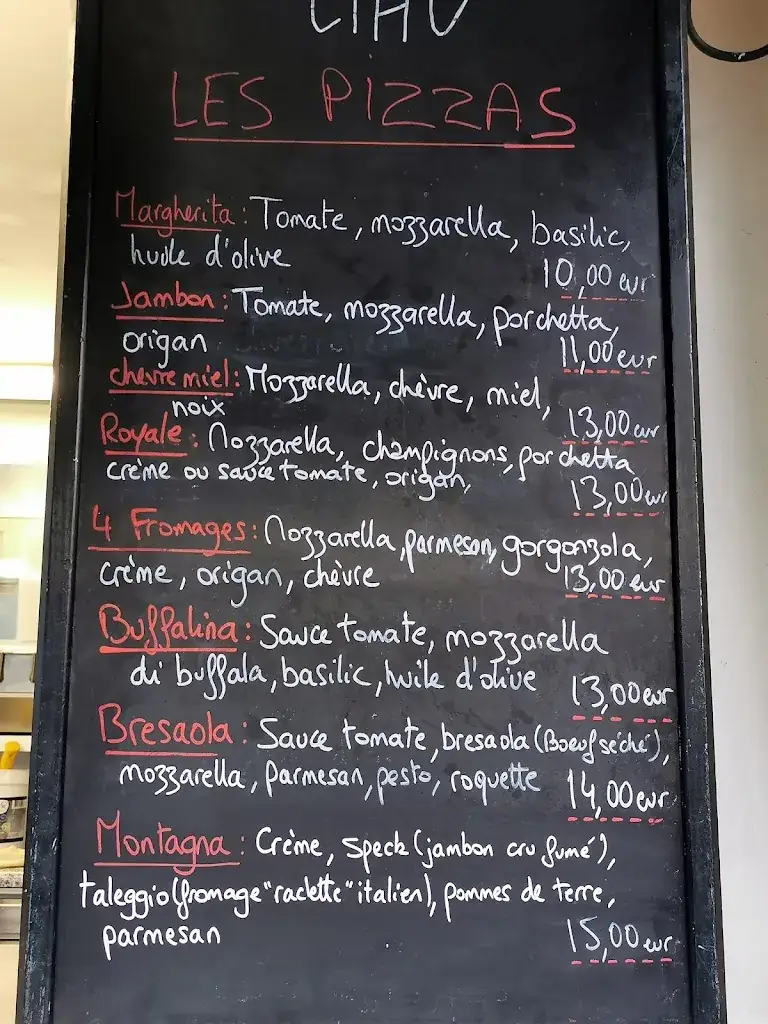 CIAO
LES PIZZAS
Margherita : Tomate, mozzarella, basilic,
huile d'olive
10,00 eur
Jambon : Tomate, mozzarella, porchetta,
origan
11,00 eur
chèvre miel : Mozzarella, chèvre, miel,
noix
13,00 eur
Royale : Mozzarella, champignons, porchetta
crème ou sauce tomate, origan,
13,00 eur
4 Fromages : Mozzarella, parmesan, gorgonzola,
crème, origan, chèvre
13,00 eur
Buffalina : Sauce tomate, mozzarella
di buffala, basilic, huile d'olive
13,00 eur
Bresaola : Sauce tomate, bresaola (Boeuf séché),
mozzarella, parmesan, pesto, roquette
14,00 eur
Montagna : Crème, speck (jambon cru fumé),
taleggio (fromage "raclette" italien), pommes de terre,
parmesan
15,00 eur